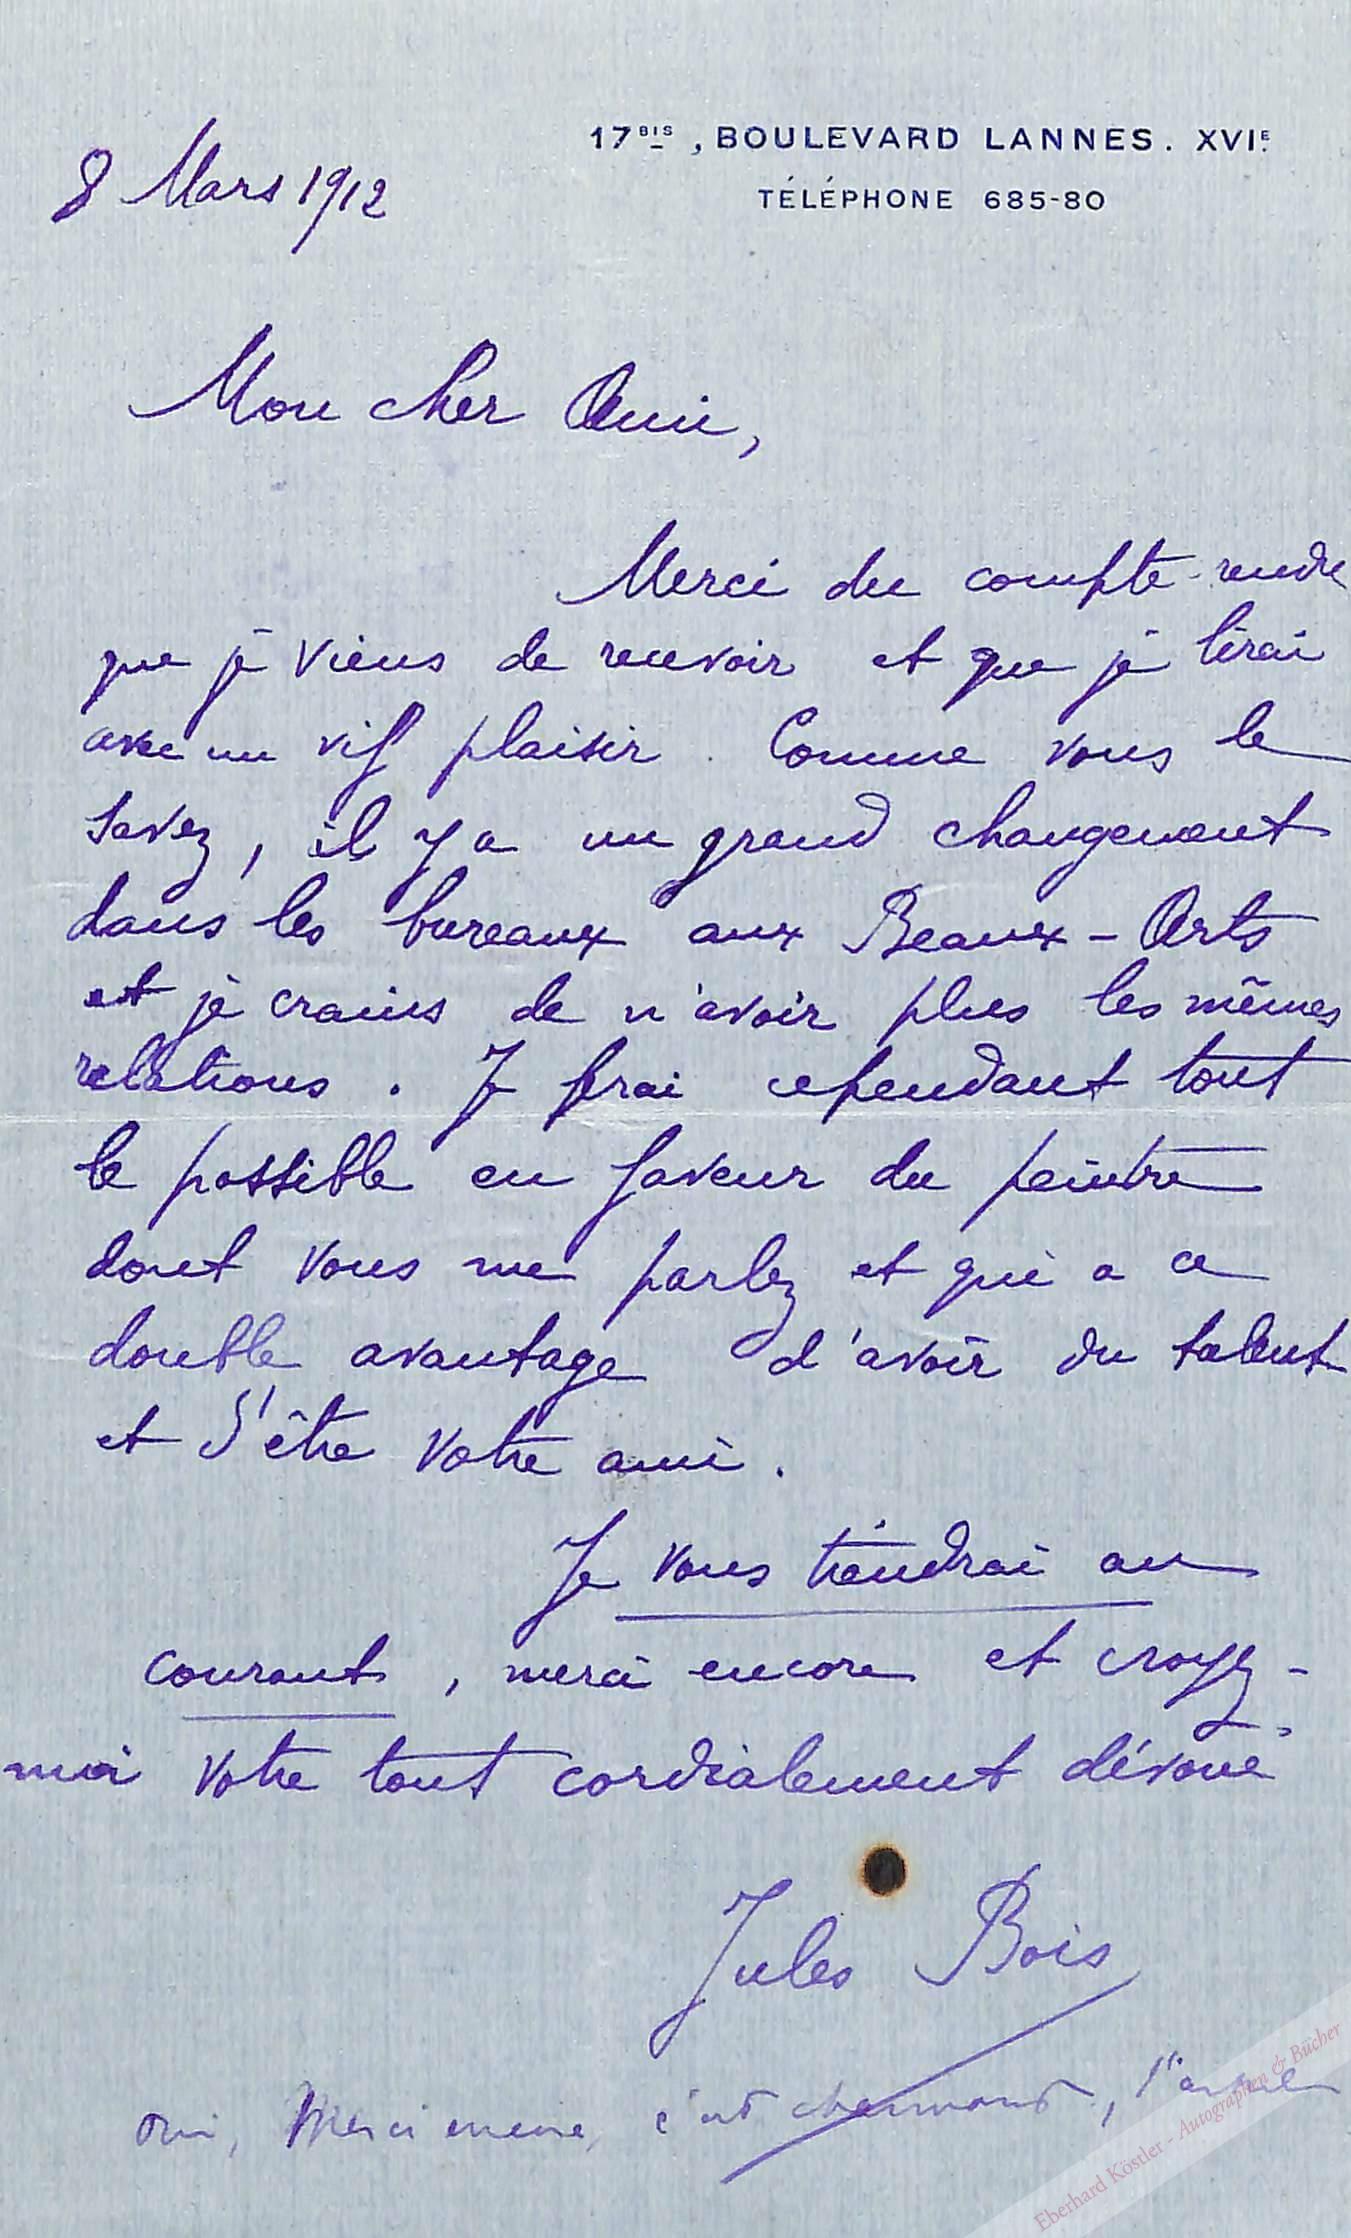 17BIS, BOULEVARD LANNES. XVIE.
TÉLÉPHONE 685-80
8 Mars 1912
Mon cher Ami,
Merci du compte-rendu
que je viens de recevoir et que je lirai
avec un vif plaisir. Comme vous le
savez, il y a un grand changement
dans les bureaux aux Beaux-Arts
et je crains de n'avoir plus les mêmes
relations. Je ferai cependant tout
le possible en faveur du peintre
dont vous me parlez et qui a ce
double avantage d'avoir du talent
et d'être votre ami.
Je vous tiendrai au
courant, merci encore et croyez-
moi votre tout cordialement dévoué
Jules Bois
oui, Merci encore, c'est charmant,
Eberhard Köstler - Autographen & Bücher